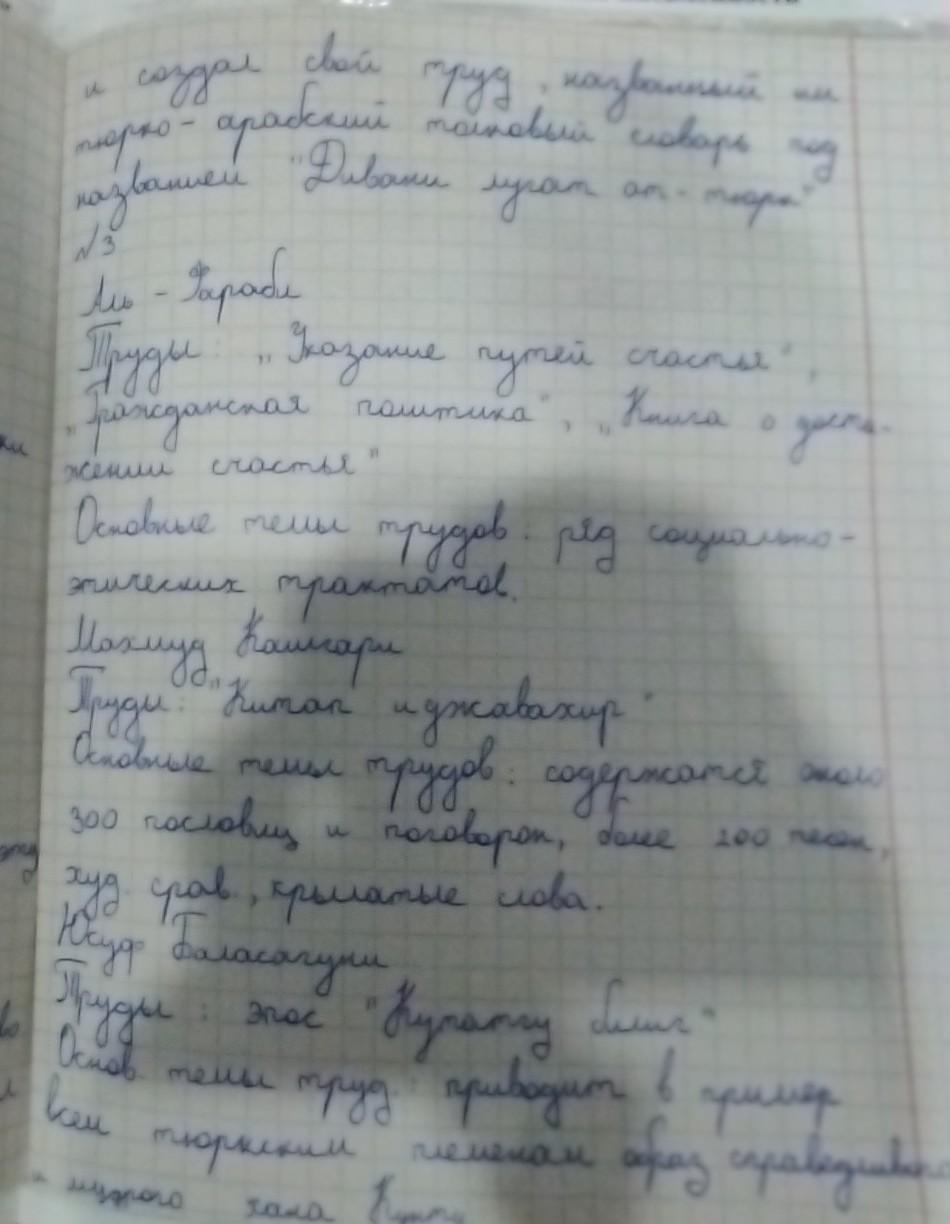 и создал свой труд, названный им
тюрко-арабский толковый словарь под
названием "Дивани лугат ат-тюрк"
№3
Аль-Фараби
Труды: „Указание путей счастья",
„Гражданская политика", „Книга о дости-
жении счастья"
Основные темы трудов: ряд социально-
этических трактатов.
Махмуд Кашгари
Труды: "Китап и джавахир"
Основные темы трудов: содержатся около
300 пословиц и поговорок, более 200 песен,
худ. срав., крылатые слова.
Юсуф Баласагуни
Труды: эпос "Кутатгу билиг"
Основ. темы труд.: приводит в пример
всем тюркским племенам образ справедливого
и мудрого хана